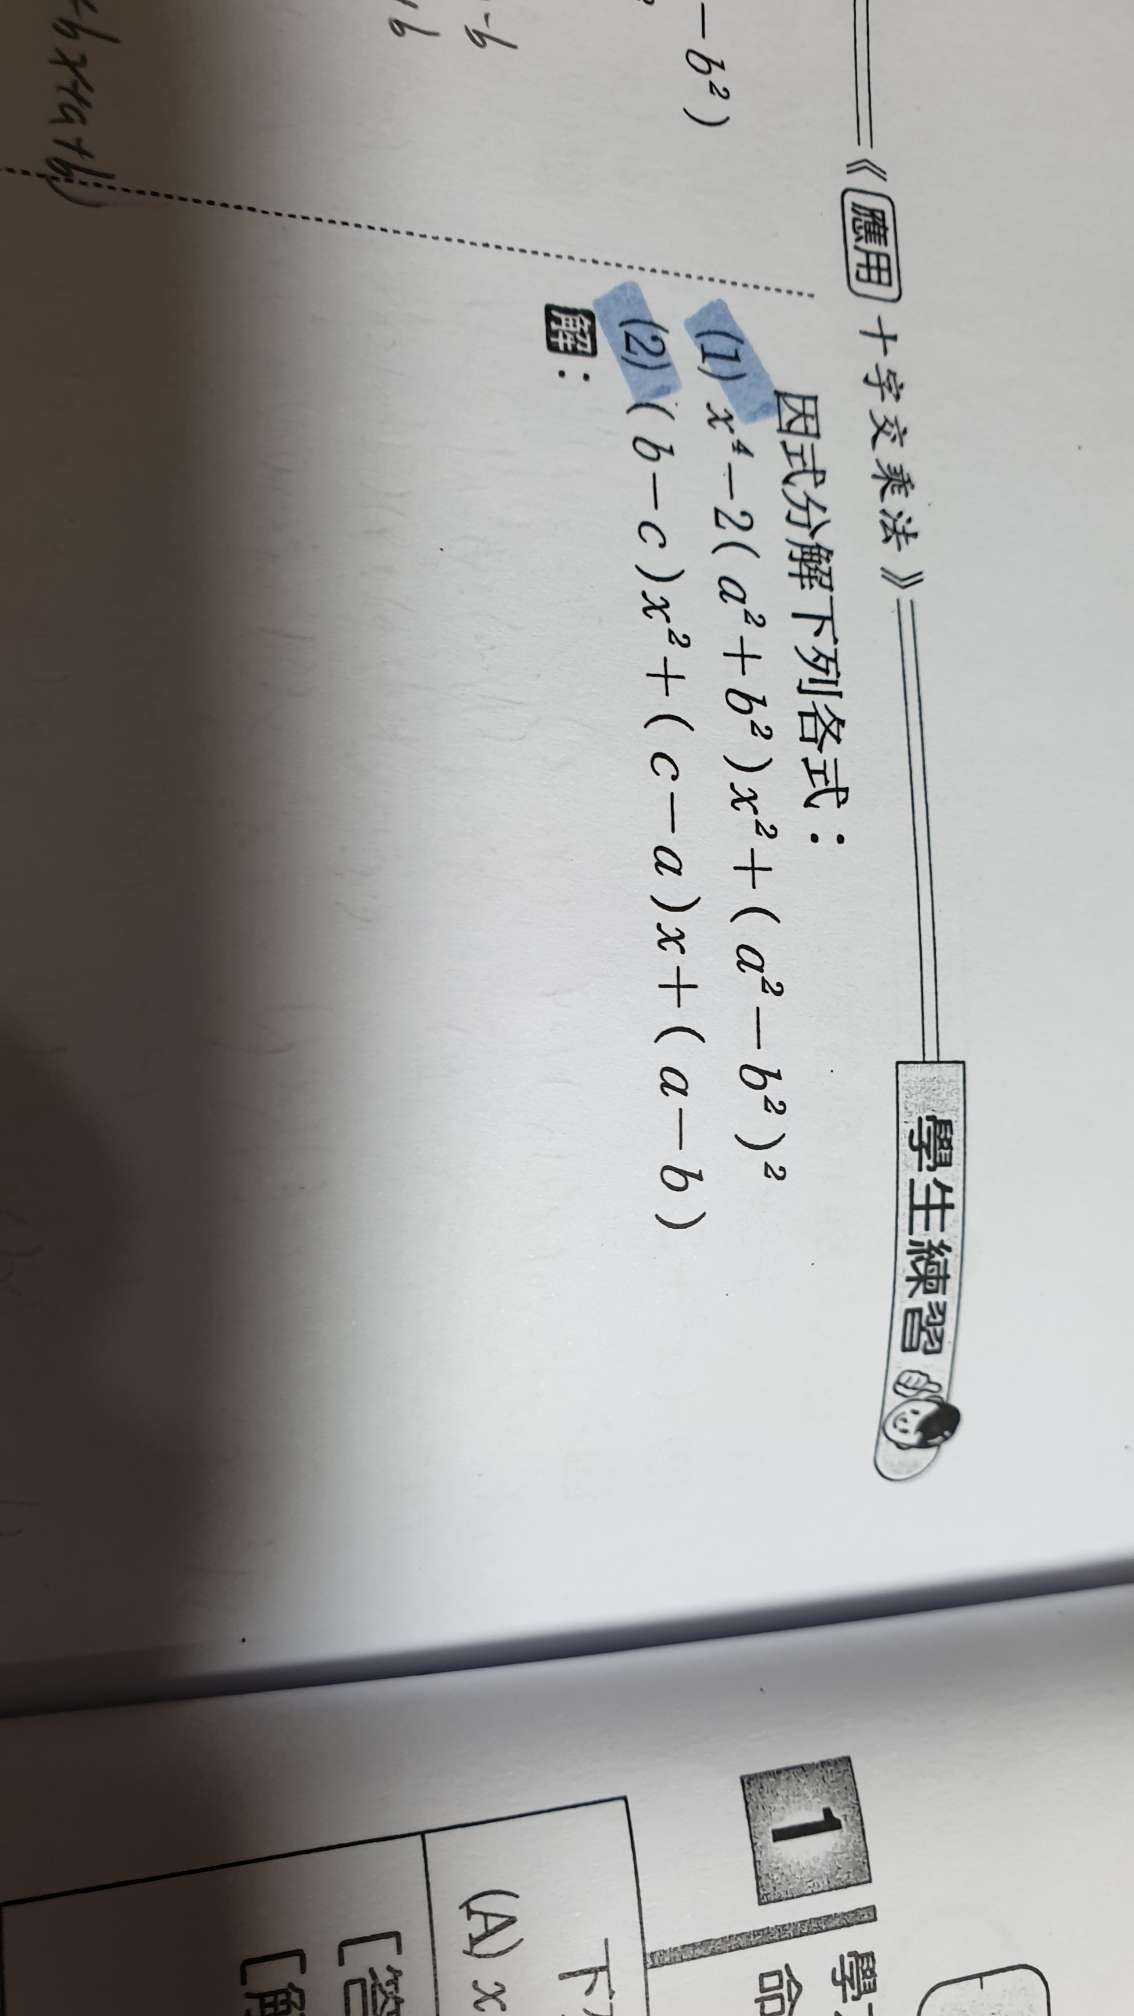 －b²)
-b
+b
+bx+a+b)
《應用 十字交乘法》
學生練習
因式分解下列各式：
(1) x⁴－2(a²＋b²)x²＋(a²－b²)²
(2) (b－c)x²＋(c－a)x＋(a－b)
解：
1
學
命
下
(A) x
[答
[解